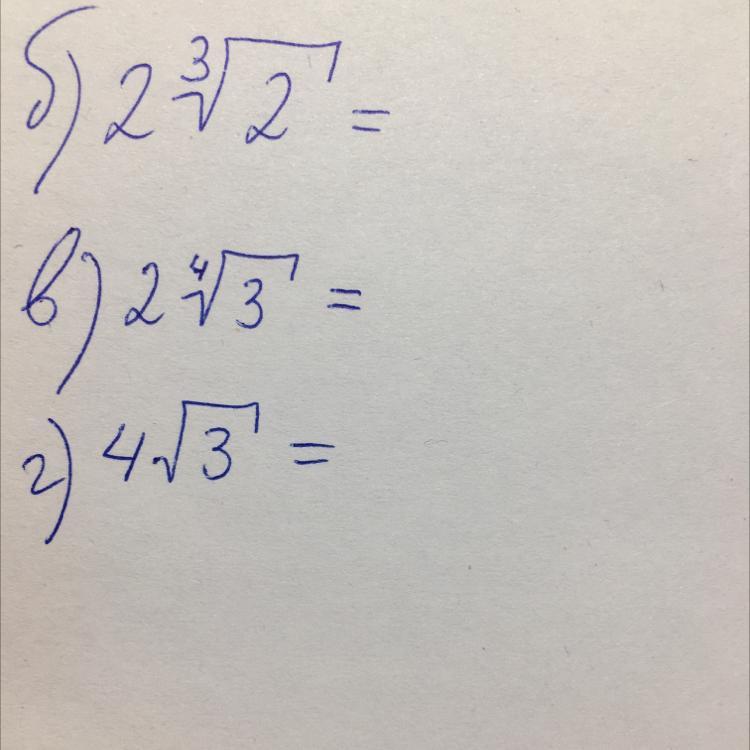 б) 2∛2 =
в) 2∜3 =
г) 4√3 =